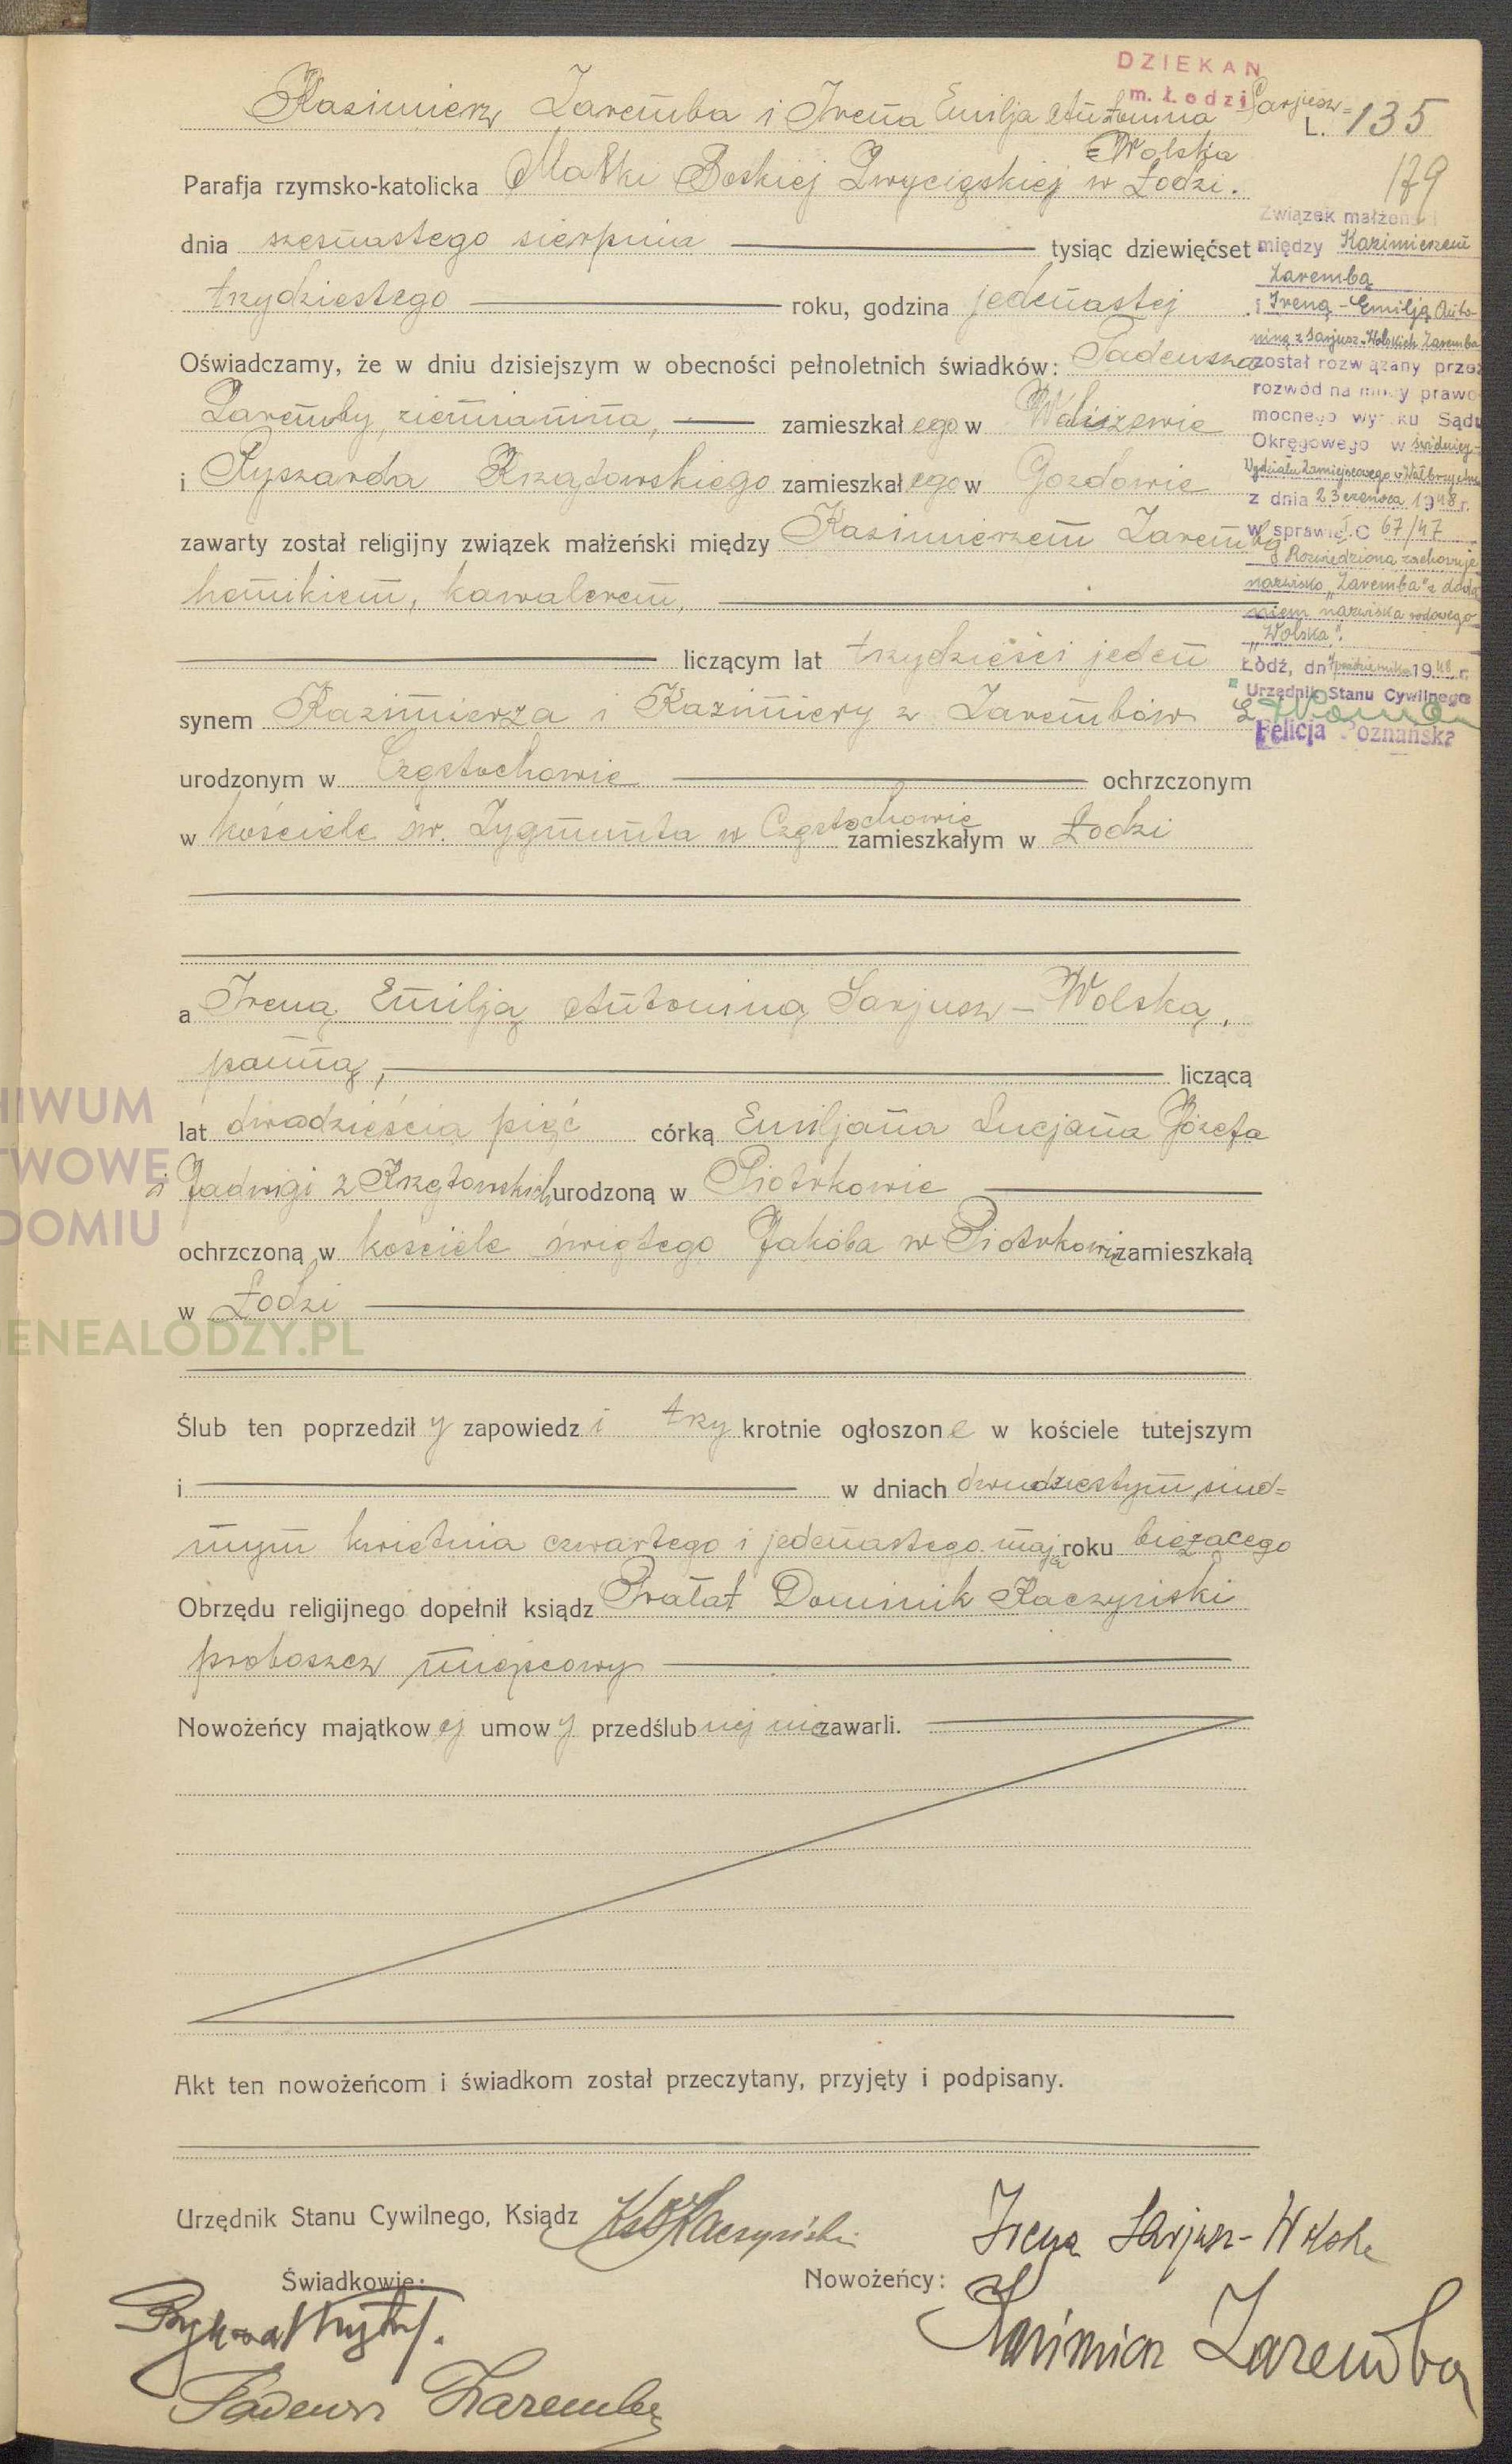 DZIEKAN
m. Łodzi
Kazimierz Zaremba i Irena Emilja Antonina Sarjusz=
=Wolska
L. 135
179
Parafja rzymsko-katolicka Matki Boskiej Zwycięskiej w Łodzi.
dnia szesnastego sierpnia tysiąc dziewięćset
trzydziestego roku, godzina jedenastej
Oświadczamy, że w dniu dzisiejszym w obecności pełnoletnich świadków: Tadeusza
Zaremby, ziemianina, zamieszkałego w
i Ryszarda Krzętowskiego zamieszkałego w Gozdowie
zawarty został religijny związek małżeński między Kazimierzem Zarembą
kawalerem,
liczącym lat trzydzieści jeden
synem Kazimierza i Kazimiery z Zarembów
urodzonym w Częstochowie ochrzczonym
w kościele św. Zygmunta w Częstochowie zamieszkałym w Łodzi
a Ireną Emilją Antoniną Sarjusz-Wolską,
panną, liczącą
lat dwadzieścia pięć córką Emiljana Lucjana Józefa
i Jadwigi z Krzętowskich urodzoną w Piotrkowie
ochrzczoną w kościele świętego Jakóba w Piotrkowie zamieszkałą
w Łodzi
Ślub ten poprzedziły zapowiedzi trzykrotnie ogłoszone w kościele tutejszym
i w dniach dwudziestym siód=
mym kwietnia czwartego i jedenastego maja roku bieżącego
Obrzędu religijnego dopełnił ksiądz Prałat Dominik Kaczyński
proboszcz miejscowy
Nowożeńcy majątkowej umowy przedślubnej nie zawarli.
Akt ten nowożeńcom i świadkom został przeczytany, przyjęty i podpisany.
Urzędnik Stanu Cywilnego, Ksiądz Ks D Kaczyński
Irena Sarjusz-Wolska
Świadkowie:
Nowożeńcy:
Kazimierz Zaremba
Tadeusz Zaremba
Związek małżeński
między Kazimierzem
Zarembą
i Ireną-Emilją Anto-
niną z Sarjusz-Wolskich Zaremba
został rozwiązany przez
rozwód na mocy prawo-
mocnego wyroku Sądu
Okręgowego w Świdnicy-
Wydziału Zamiejscowego w Wałbrzychu
z dnia 23 czerwca 1948 r.
w sprawie I.C 67/47
Rozwiedziona zachowuje
nazwisko "Zaremba" z doda-
niem nazwiska rodowego
"Wolska".
Łódź, dn 7 października 1948 r.
Urzędnik Stanu Cywilnego
Felicja Poznańska
HIWUM
TWOWE
DOMIU
GENEALODZY.PL